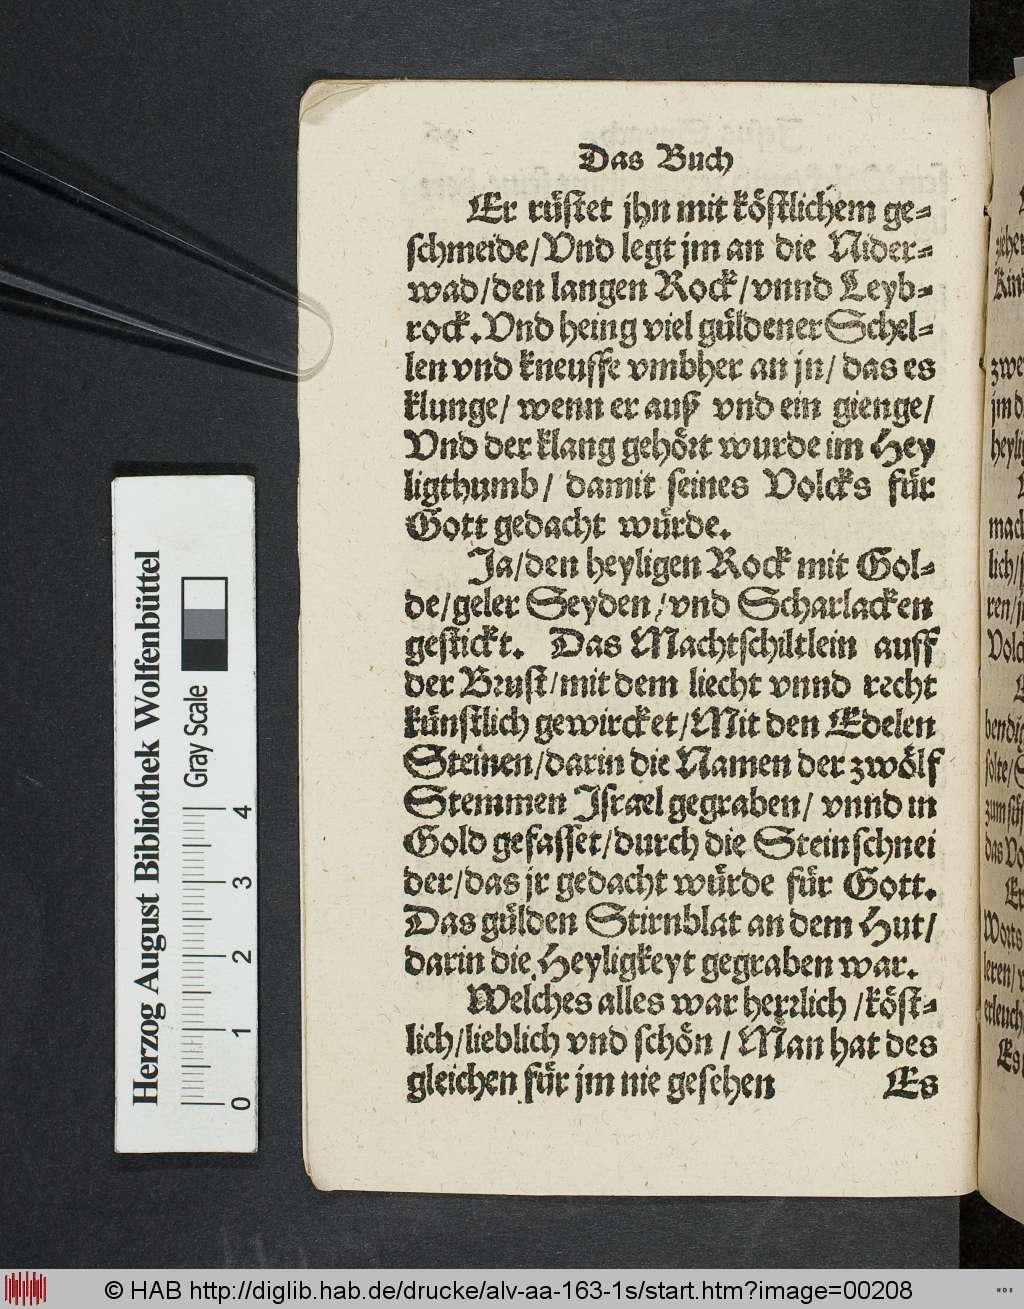 Das Buch
Er rüstet jhn mit köstlichem ge=
schmeide/Vnd legt jm an die Nider=
wad/den langen Rock/vnnd Leyb=
rock. Vnd heing viel güldener Schel=
len vnd kneuffe vmbher an jn/ das es
klunge/ wenn er auß vnd ein gienge/
Vnd der klang gehört wurde im Hey
ligthumb/ damit seines Volcks für
Gott gedacht würde.
Ja/den heyligen Rock mit Gol=
de/geler Seyden/vnd Scharlacken
gestickt. Das Machtschiltlein auff
der Brust/mit dem liecht vnnd recht
künstlich gewircket/Mit den Edelen
Steinen/darin die Namen der zwölf
Stemmen Israel gegraben/ vnnd in
Gold gefasset/durch die Steinschnei
der/das jr gedacht würde für Gott.
Das gülden Stirnblat an dem Hut/
darin die Heyligkeyt gegraben war.
Welches alles war herrlich /köst=
lich/lieblich vnd schön / Man hat des
gleichen für jm nie gesehen Es
Herzog August Bibliothek Wolfenbüttel
Gray Scale
0 1 2 3 4
zwe
jm d
heylig
mach
lich/
ren/j
Volck
bendig
solte/
das Vo
Er
Worts
leren/
erleuch
Es
© HAB http://diglib.hab.de/drucke/alv-aa-163-1s/start.htm?image=00208